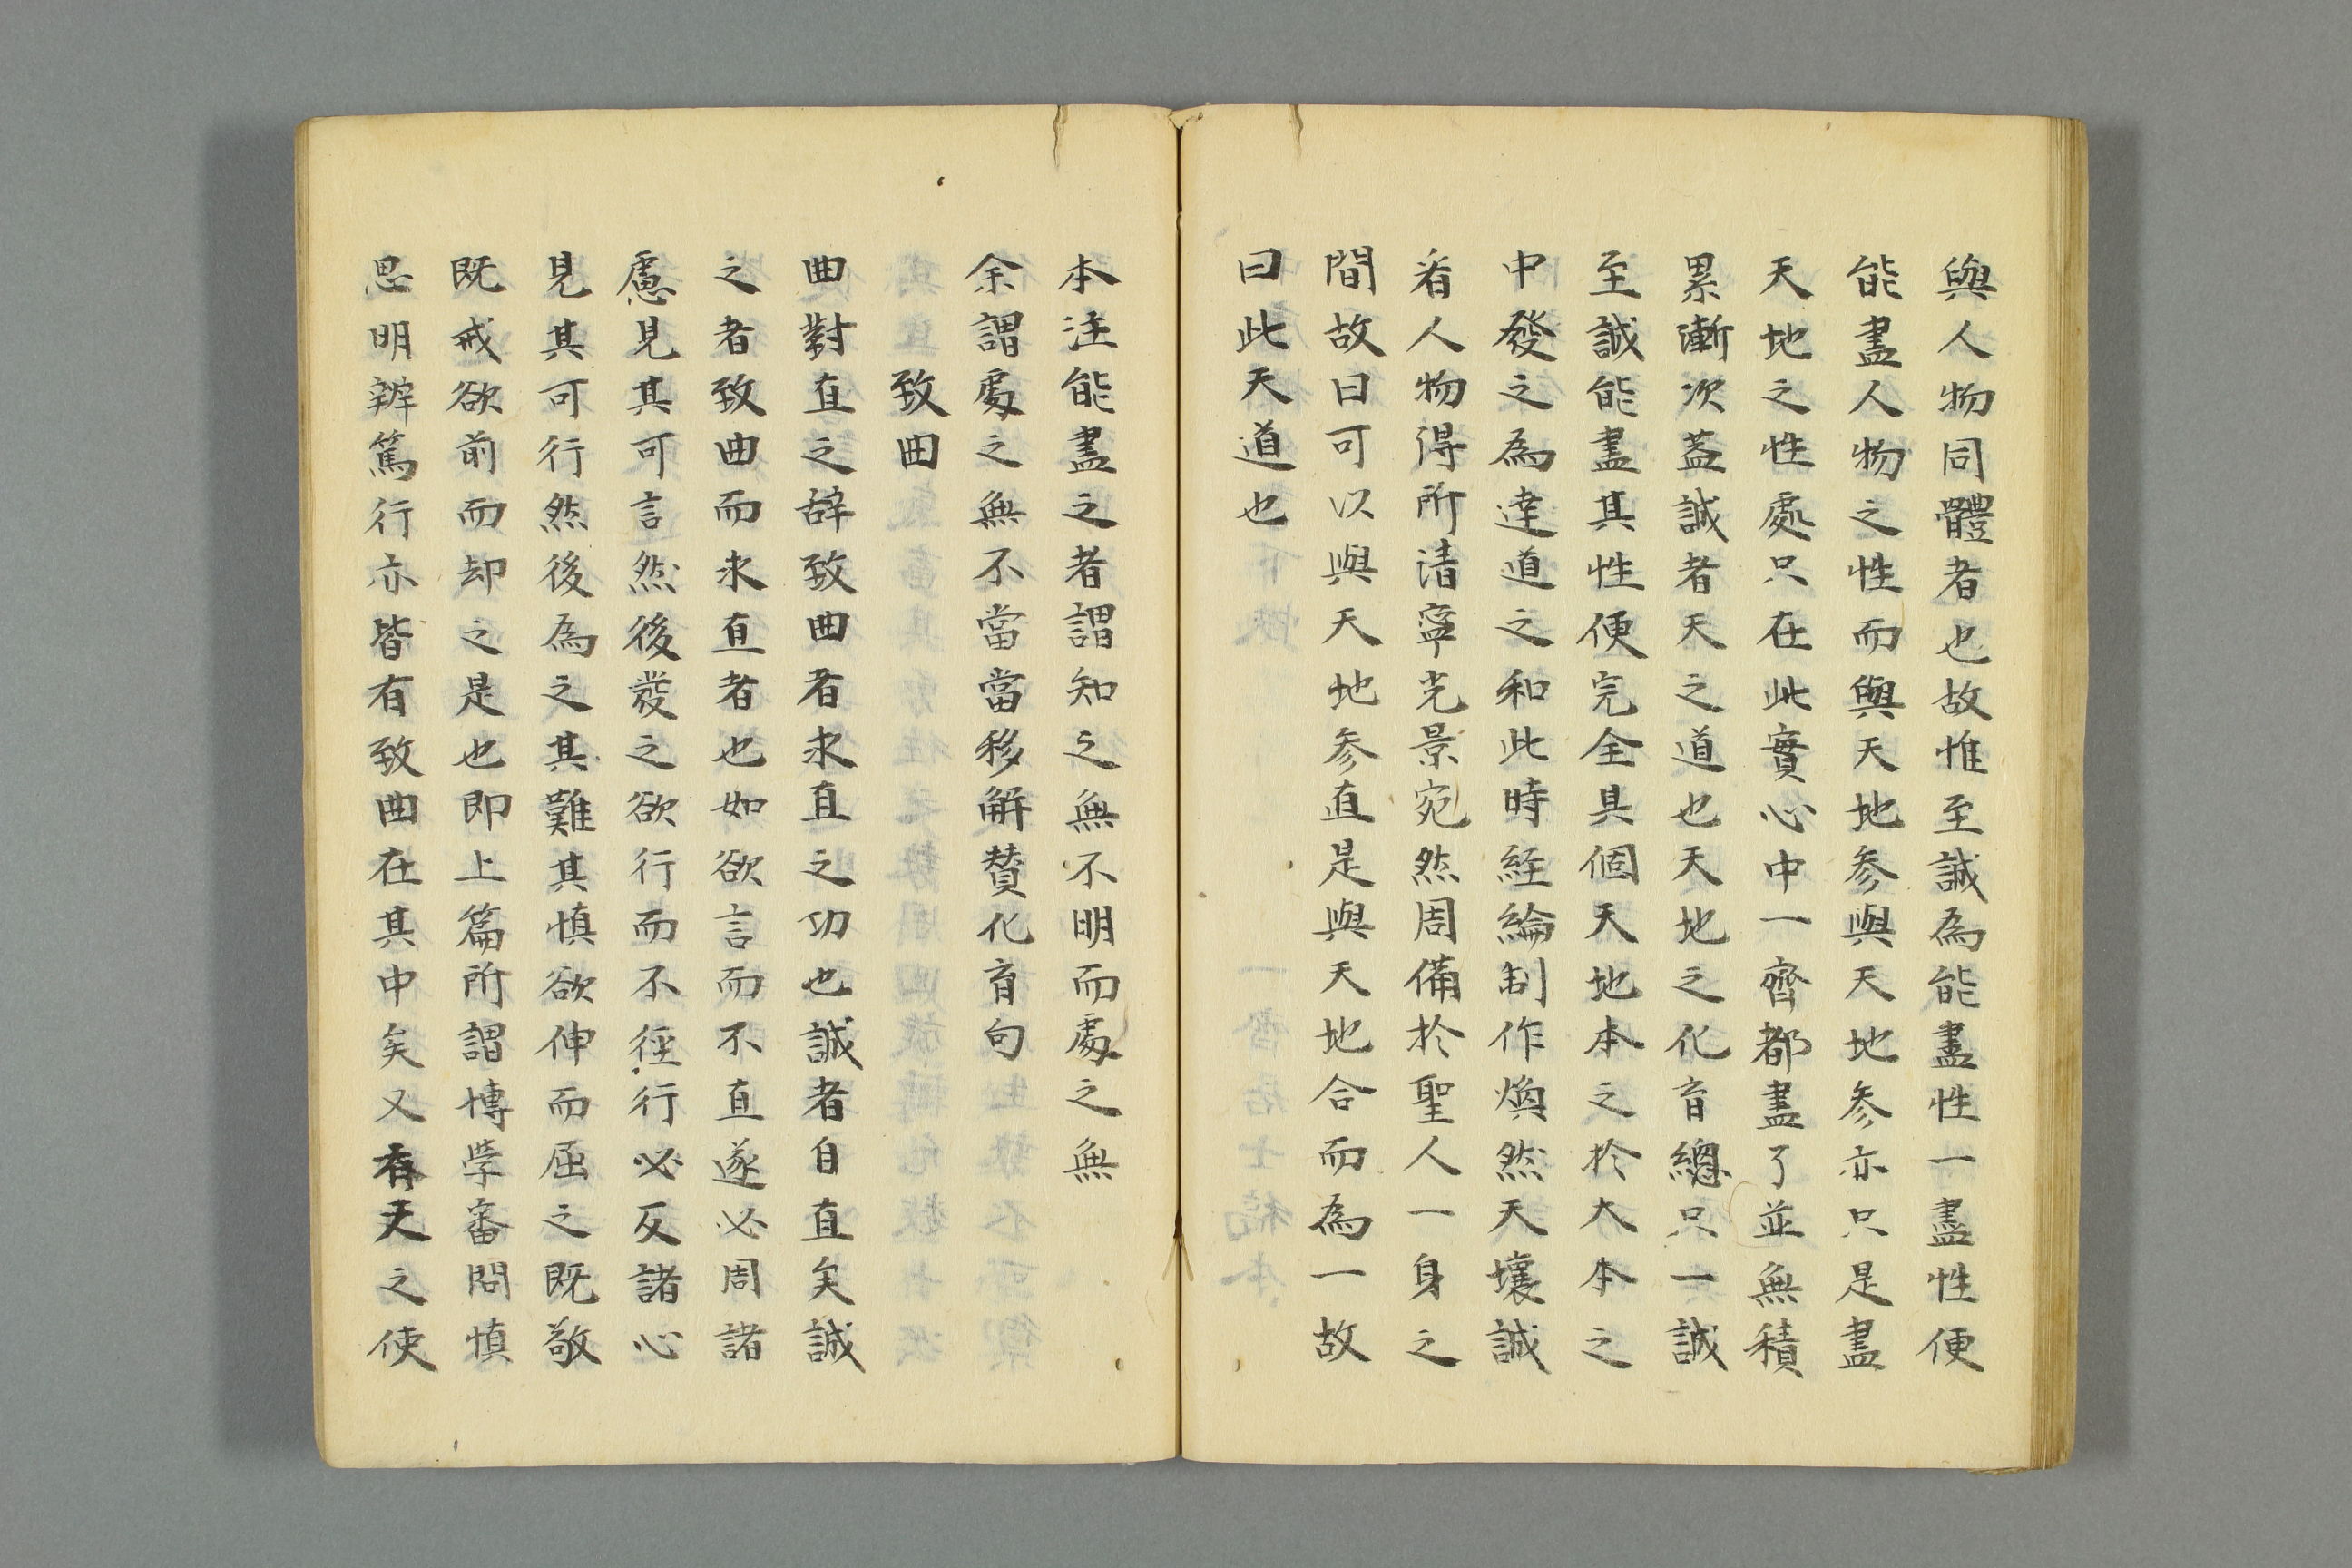 與人物同體者也故惟至誠為能盡性一盡性便
能盡人物之性而與天地参與天地参亦只是盡
天地之性處只在此實心中一齊都盡了並無積
累漸次蓋誠者天之道也天地之化育總只一誠
至誠能盡其性便完全具個天地本之於大本之
中發之為達道之和此時経綸制作煥然天壤誠
看人物得所清寧光景宛然周備於聖人一身之
間故曰可以與天地参直是與天地合而為一故
曰此天道也
本注能盡之者謂知之無不明而處之無
余謂處之無不當當移解賛化育句
致曲
曲對直之辞致曲者求直之功也誠者自直矣誠
之者致曲而求直者也如欲言而不直遂必周諸
慮見其可言然後發之欲行而不徑行必反諸心
見其可行然後為之其難其慎欲伸而屈之既敬
既戒欲前而却之是也即上篇所謂博学審問慎
思明辨篤行亦皆有致曲在其中矣又有天之使